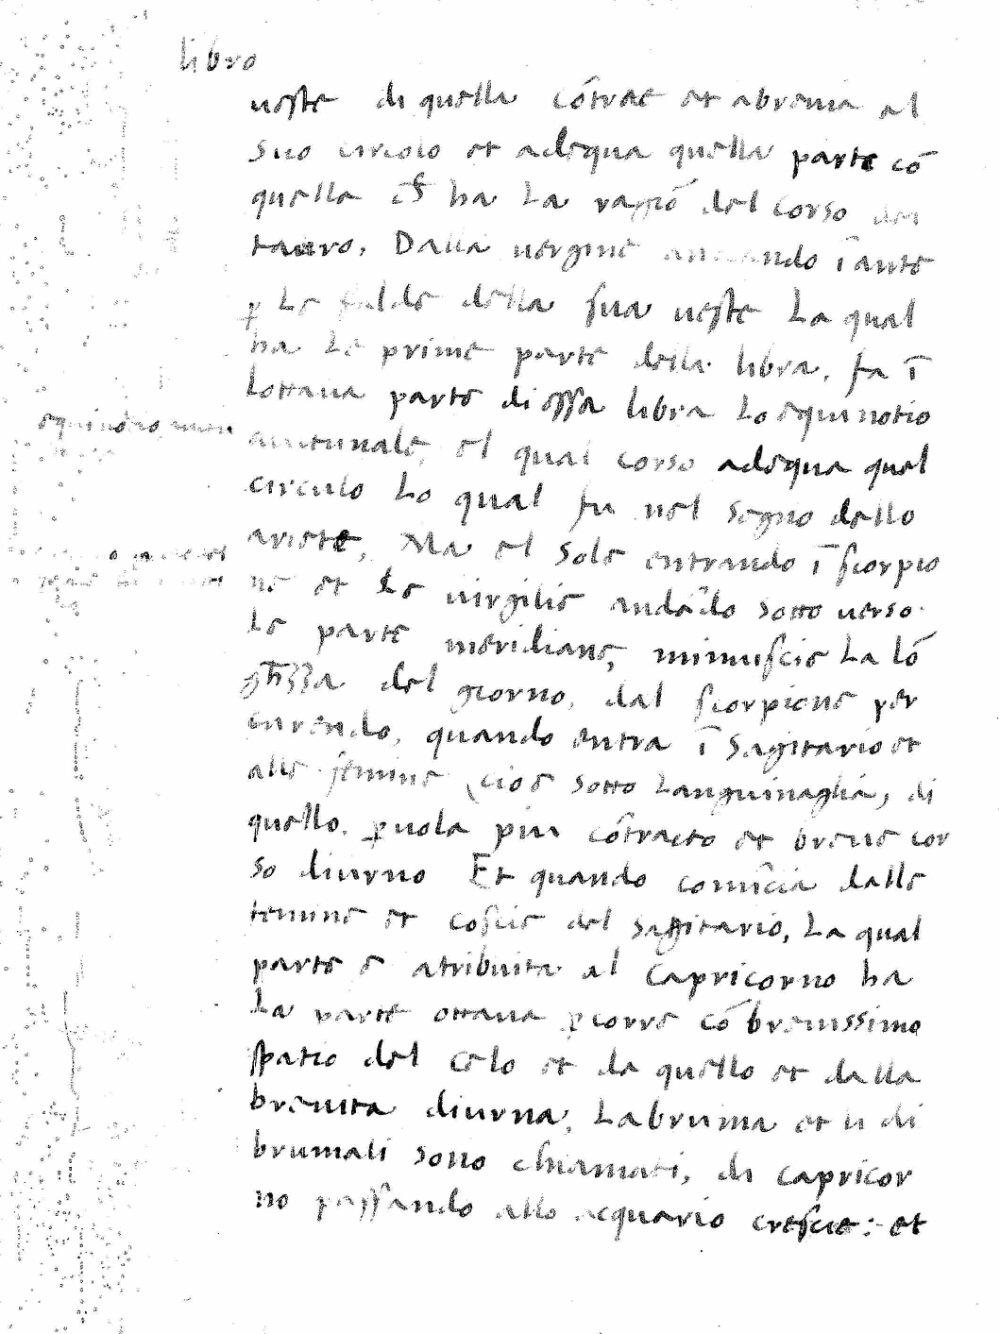 libro
ueste di quella cōtrae et abreuia al
suo circolo et adequa quella parte cō
quella ch̄ ha La ragiō del corso del
tauro. Dalla uergine andando īante
ꝑ Le falde della sua ueste La qual
ha Le prime parte della libra. fa ī
lottaua parte di essa libra Lo equinotio
autunale, el qual corso adequa quel
circulo Lo qual fu nel segno dello
ariete, Ma el Sole entrando ī scorpio
ne et Le uirgilie andādo sotto uerso
Le parte meridiane, minuiscie La lō
gh̄zza del giorno. dal scorpione per
currendo, quando entra ī Sagitario et
alle femine (cioe sotto Languinaglia, di
quello. ꝑuola piu cōtracto et breue cor
so diurno Et quando comīcia dalle
femine et coscie del sagittario, La qual
parte e atribuita al Capricorno ha
La parte ottaua ꝑcorre cō breuissimo
spatio del Celo et da quello et dalla
breuita diurna, Labruma et li di
brumali sono chiamati, di capricor
no passando allo acquario crescie: et